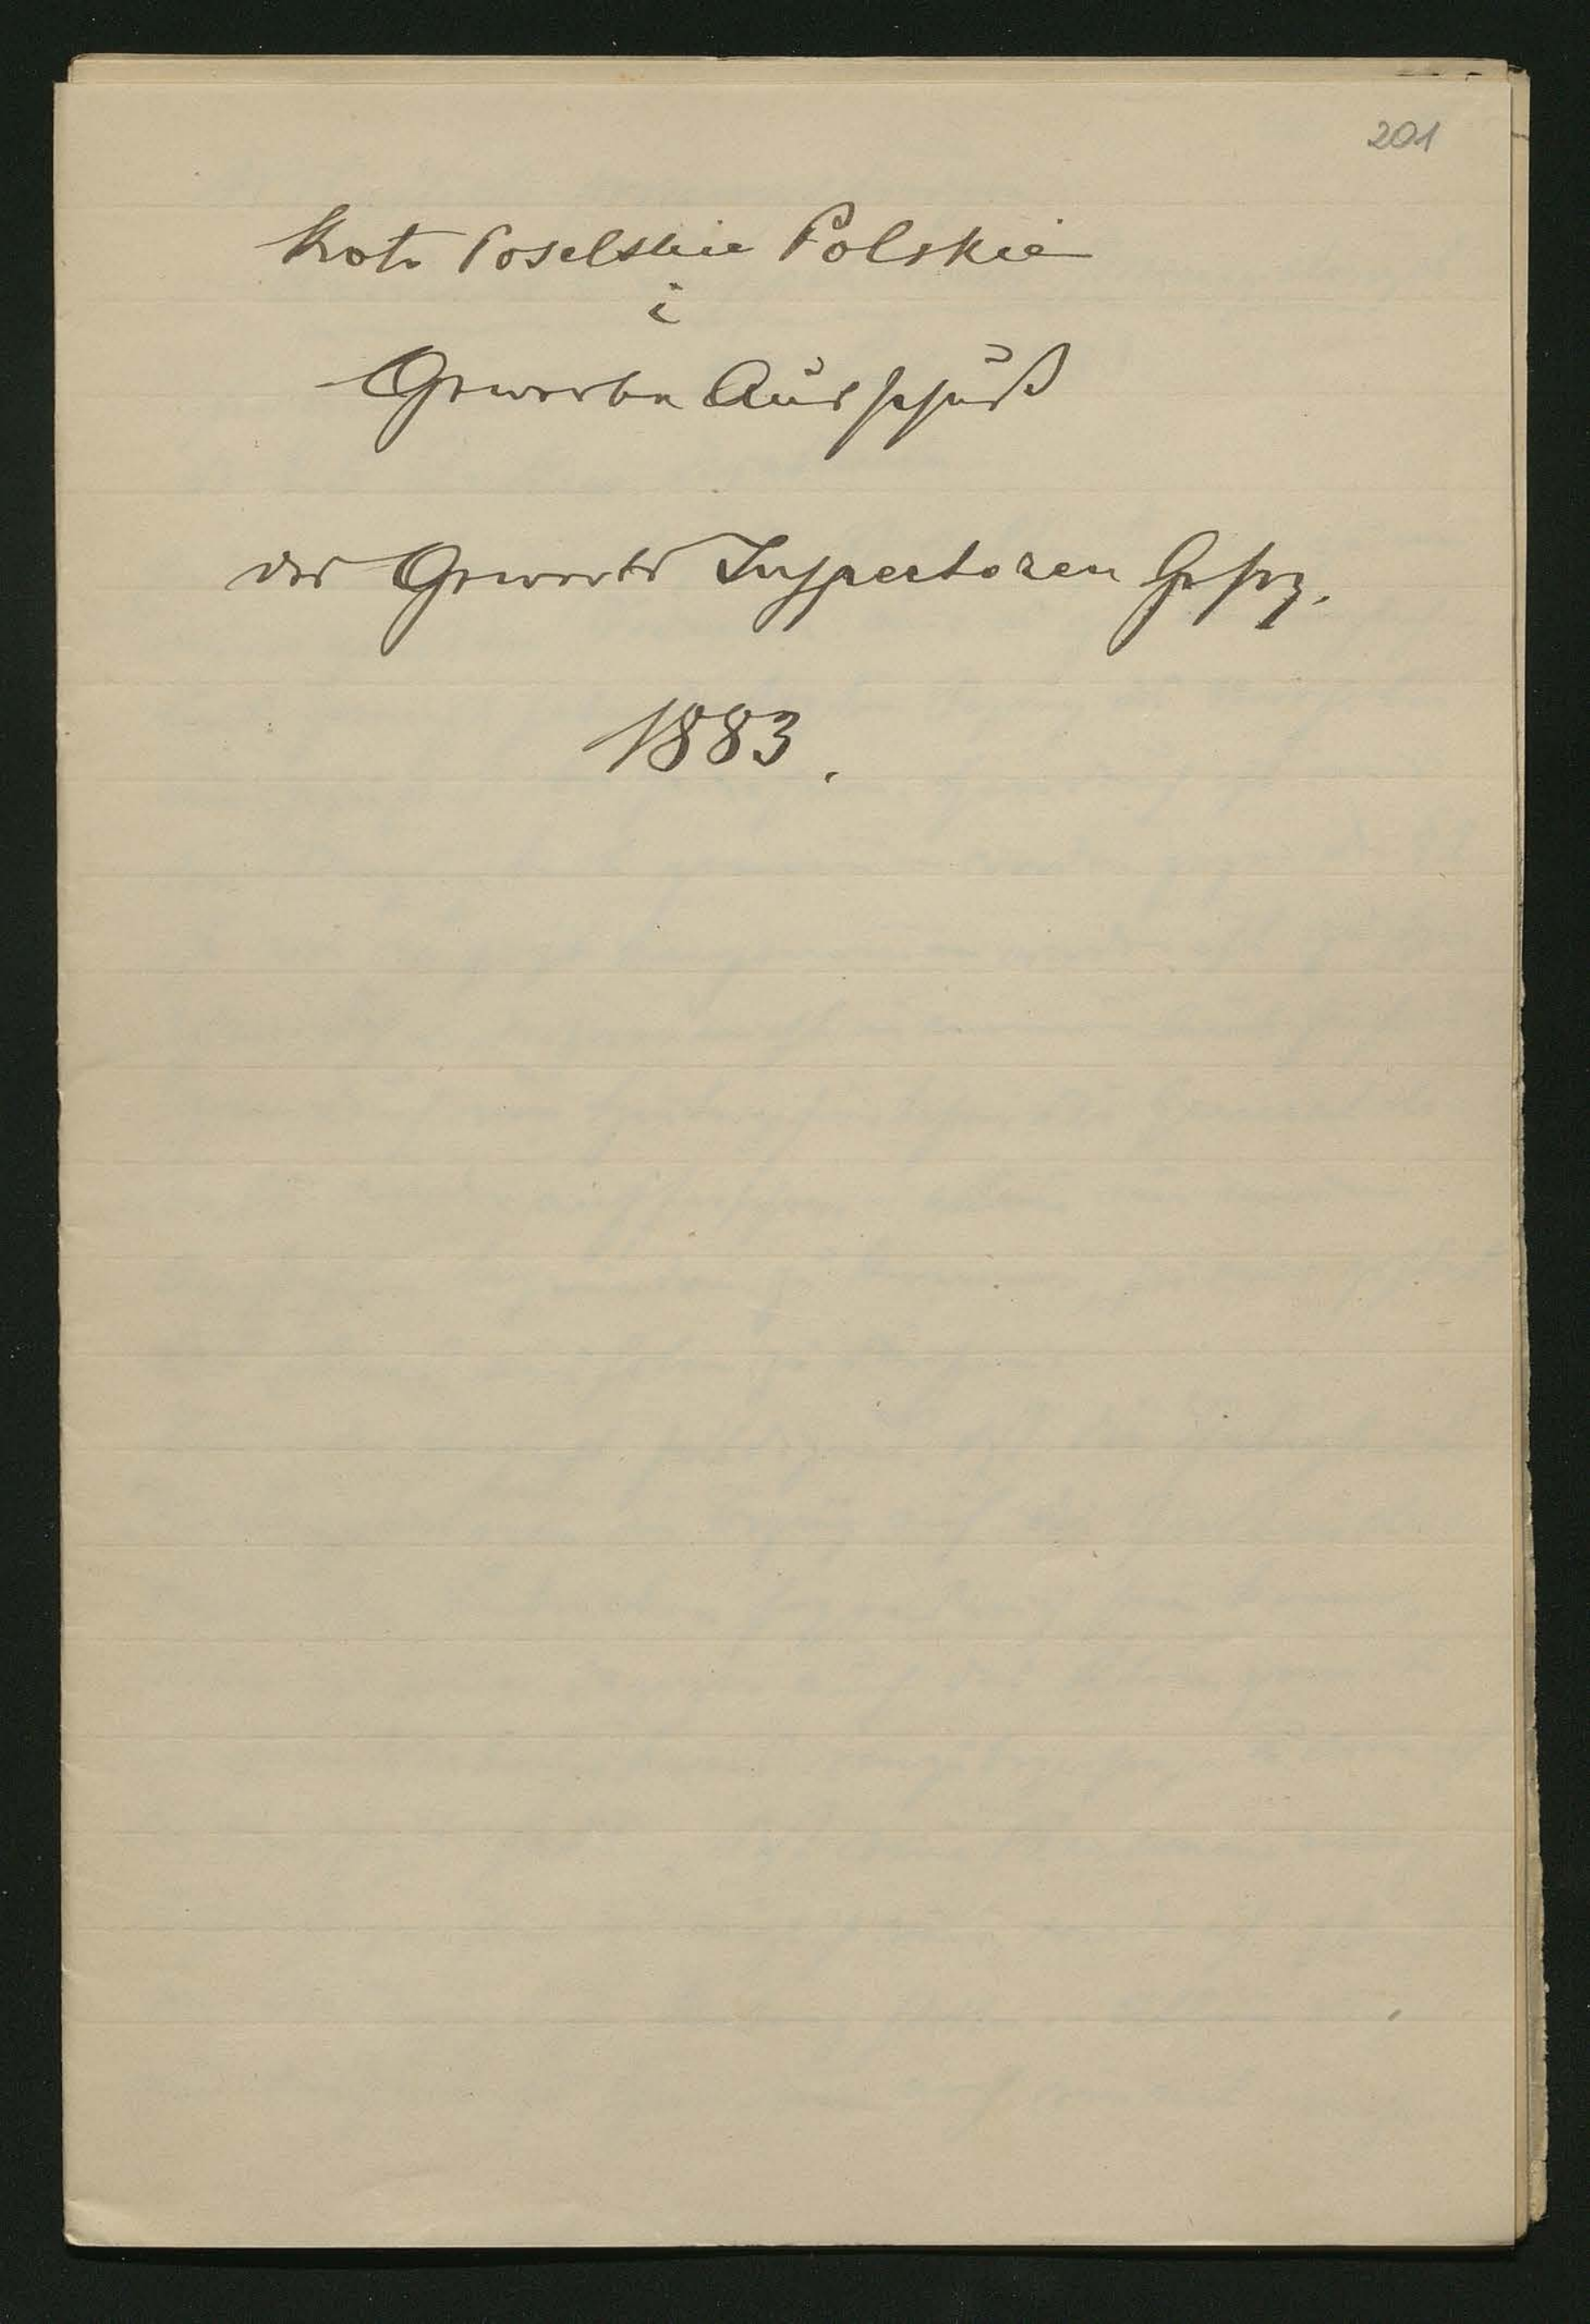 201
Koło Poselskie Polskie
i
Gewerbe Ausschuß
das Gewerbe Inspectoren Gesez.
1883.